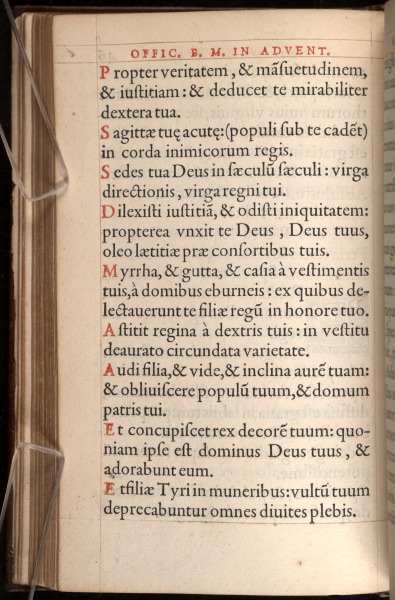 OFFIC. B. M. IN ADVENT.
Propter veritatem, & mãſuetudinem,
& iuſtitiam: & deducet te mirabiliter
dextera tua.
Sagittæ tuę acutę: (populi ſub te cadẽt)
in corda inimicorum regis.
Sedes tua Deus in ſæculũ ſæculi: virga
directionis, virga regni tui.
Dilexiſti iuſtitiã, & odiſti iniquitatem:
propterea vnxit te Deus, Deus tuus,
oleo lætitiæ præ conſortibus tuis.
Myrrha, & gutta, & caſia à veſtimentis
tuis, à domibus eburneis: ex quibus de-
lectauerunt te filiæ regũ in honore tuo.
Aſtitit regina à dextris tuis: in veſtitu
deaurato circundata varietate.
Audi filia, & vide, & inclina aurẽ tuam:
& obliuiſcere populũ tuum, & domum
patris tui.
Et concupiſcet rex decorẽ tuum: quo-
niam ipſe eſt dominus Deus tuus, &
adorabunt eum.
Et filiæ Tyri in muneribus: vultũ tuum
deprecabuntur omnes diuites plebis.